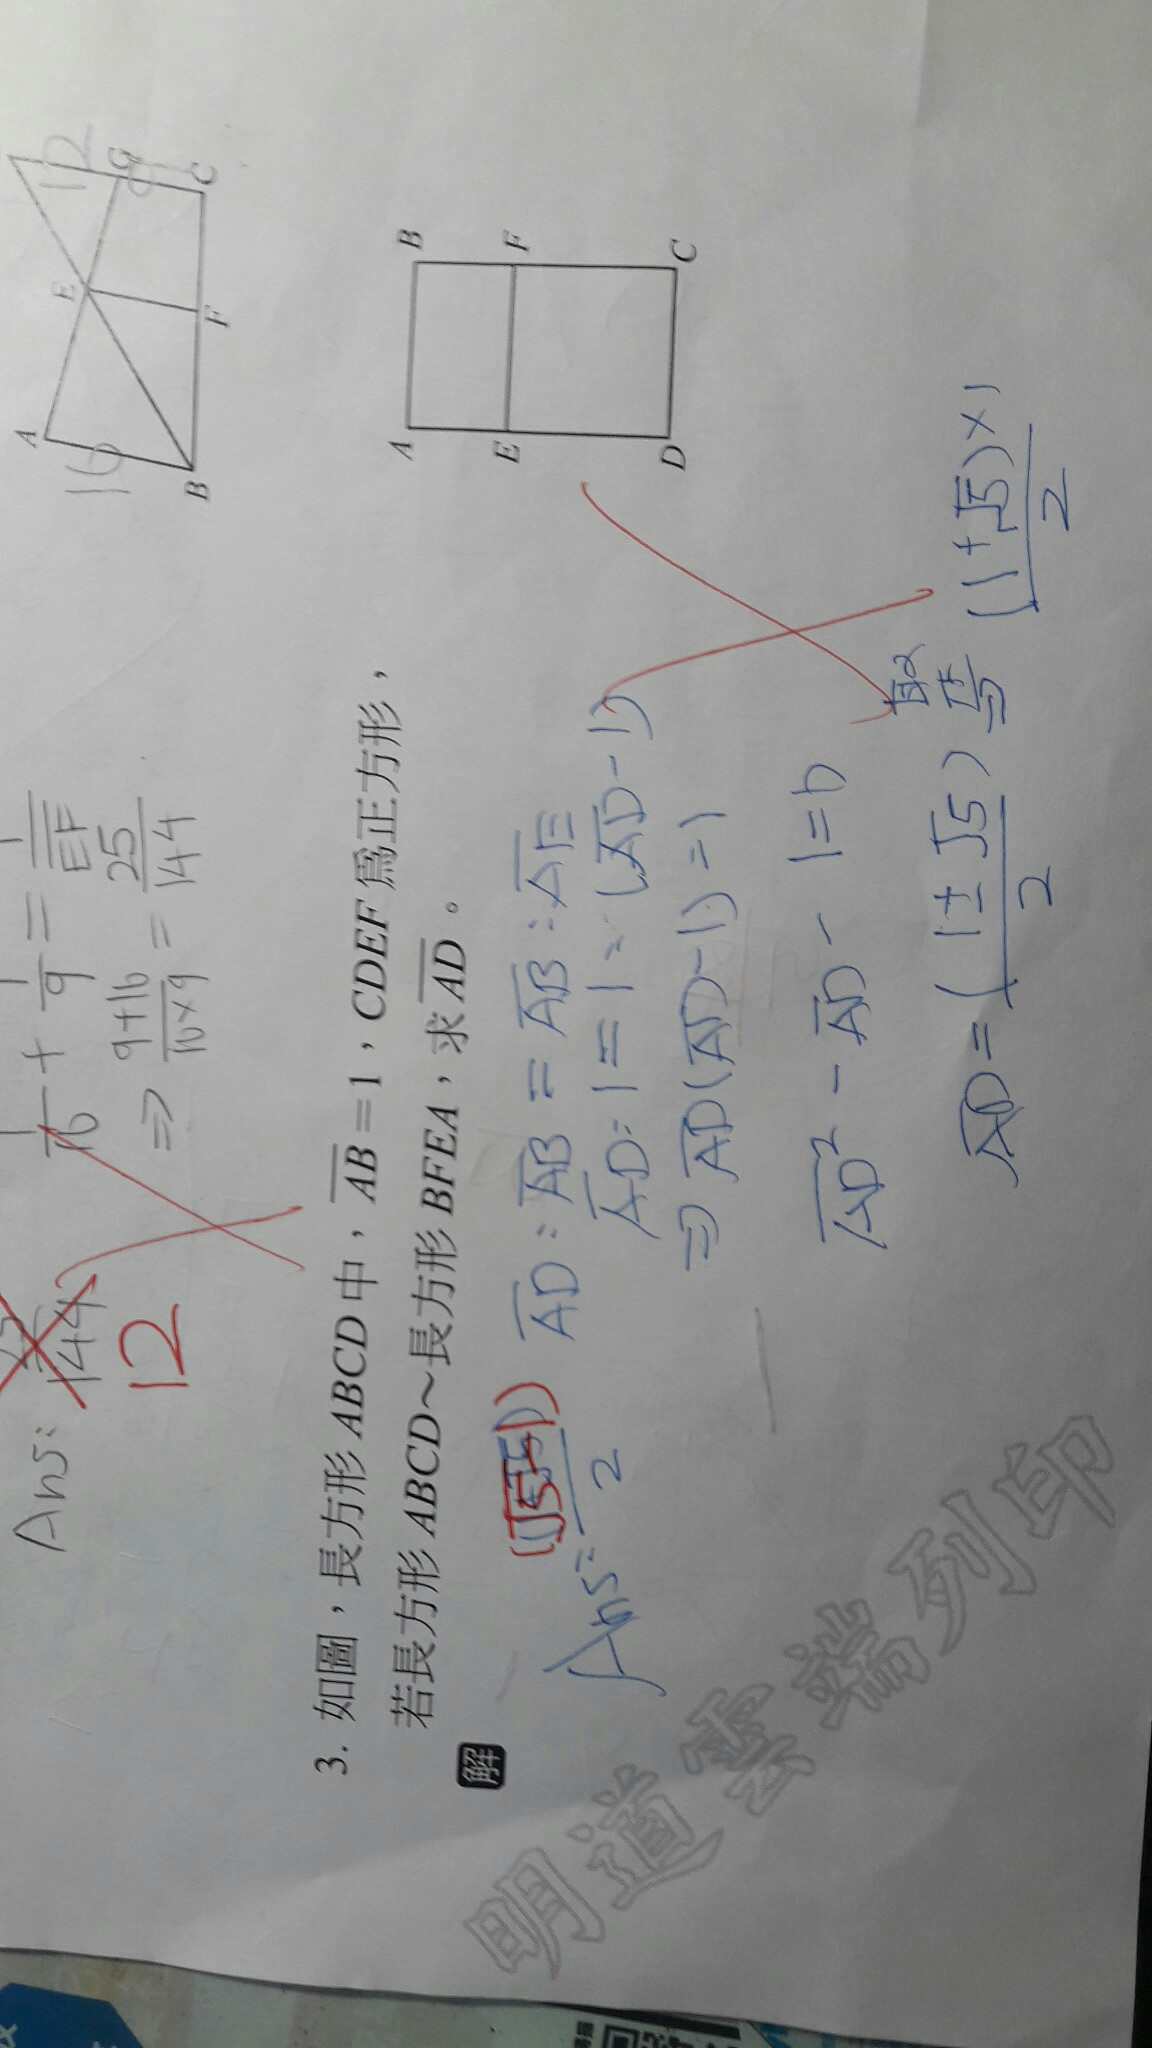 A
E
B
F
G
C
16
12
9
1/16 + 1/9 = 1/EF
⇒ 9+16/16×9 = 25/144
Ans:
144
12
3. 如圖，長方形 ABCD 中，AB=1，CDEF 爲正方形，
若長方形 ABCD~長方形 BFEA，求 AD。
A
B
E
F
D
C
解
AD:AB = AB:AE
AD:1=1:(AD-1)
⇒ AD(AD-1)=1
AD² - AD - 1=0
AD=(1±√5)/2 取正 (1+√5)×1/2
Ans: (√5+1)/2
明道雲端列印